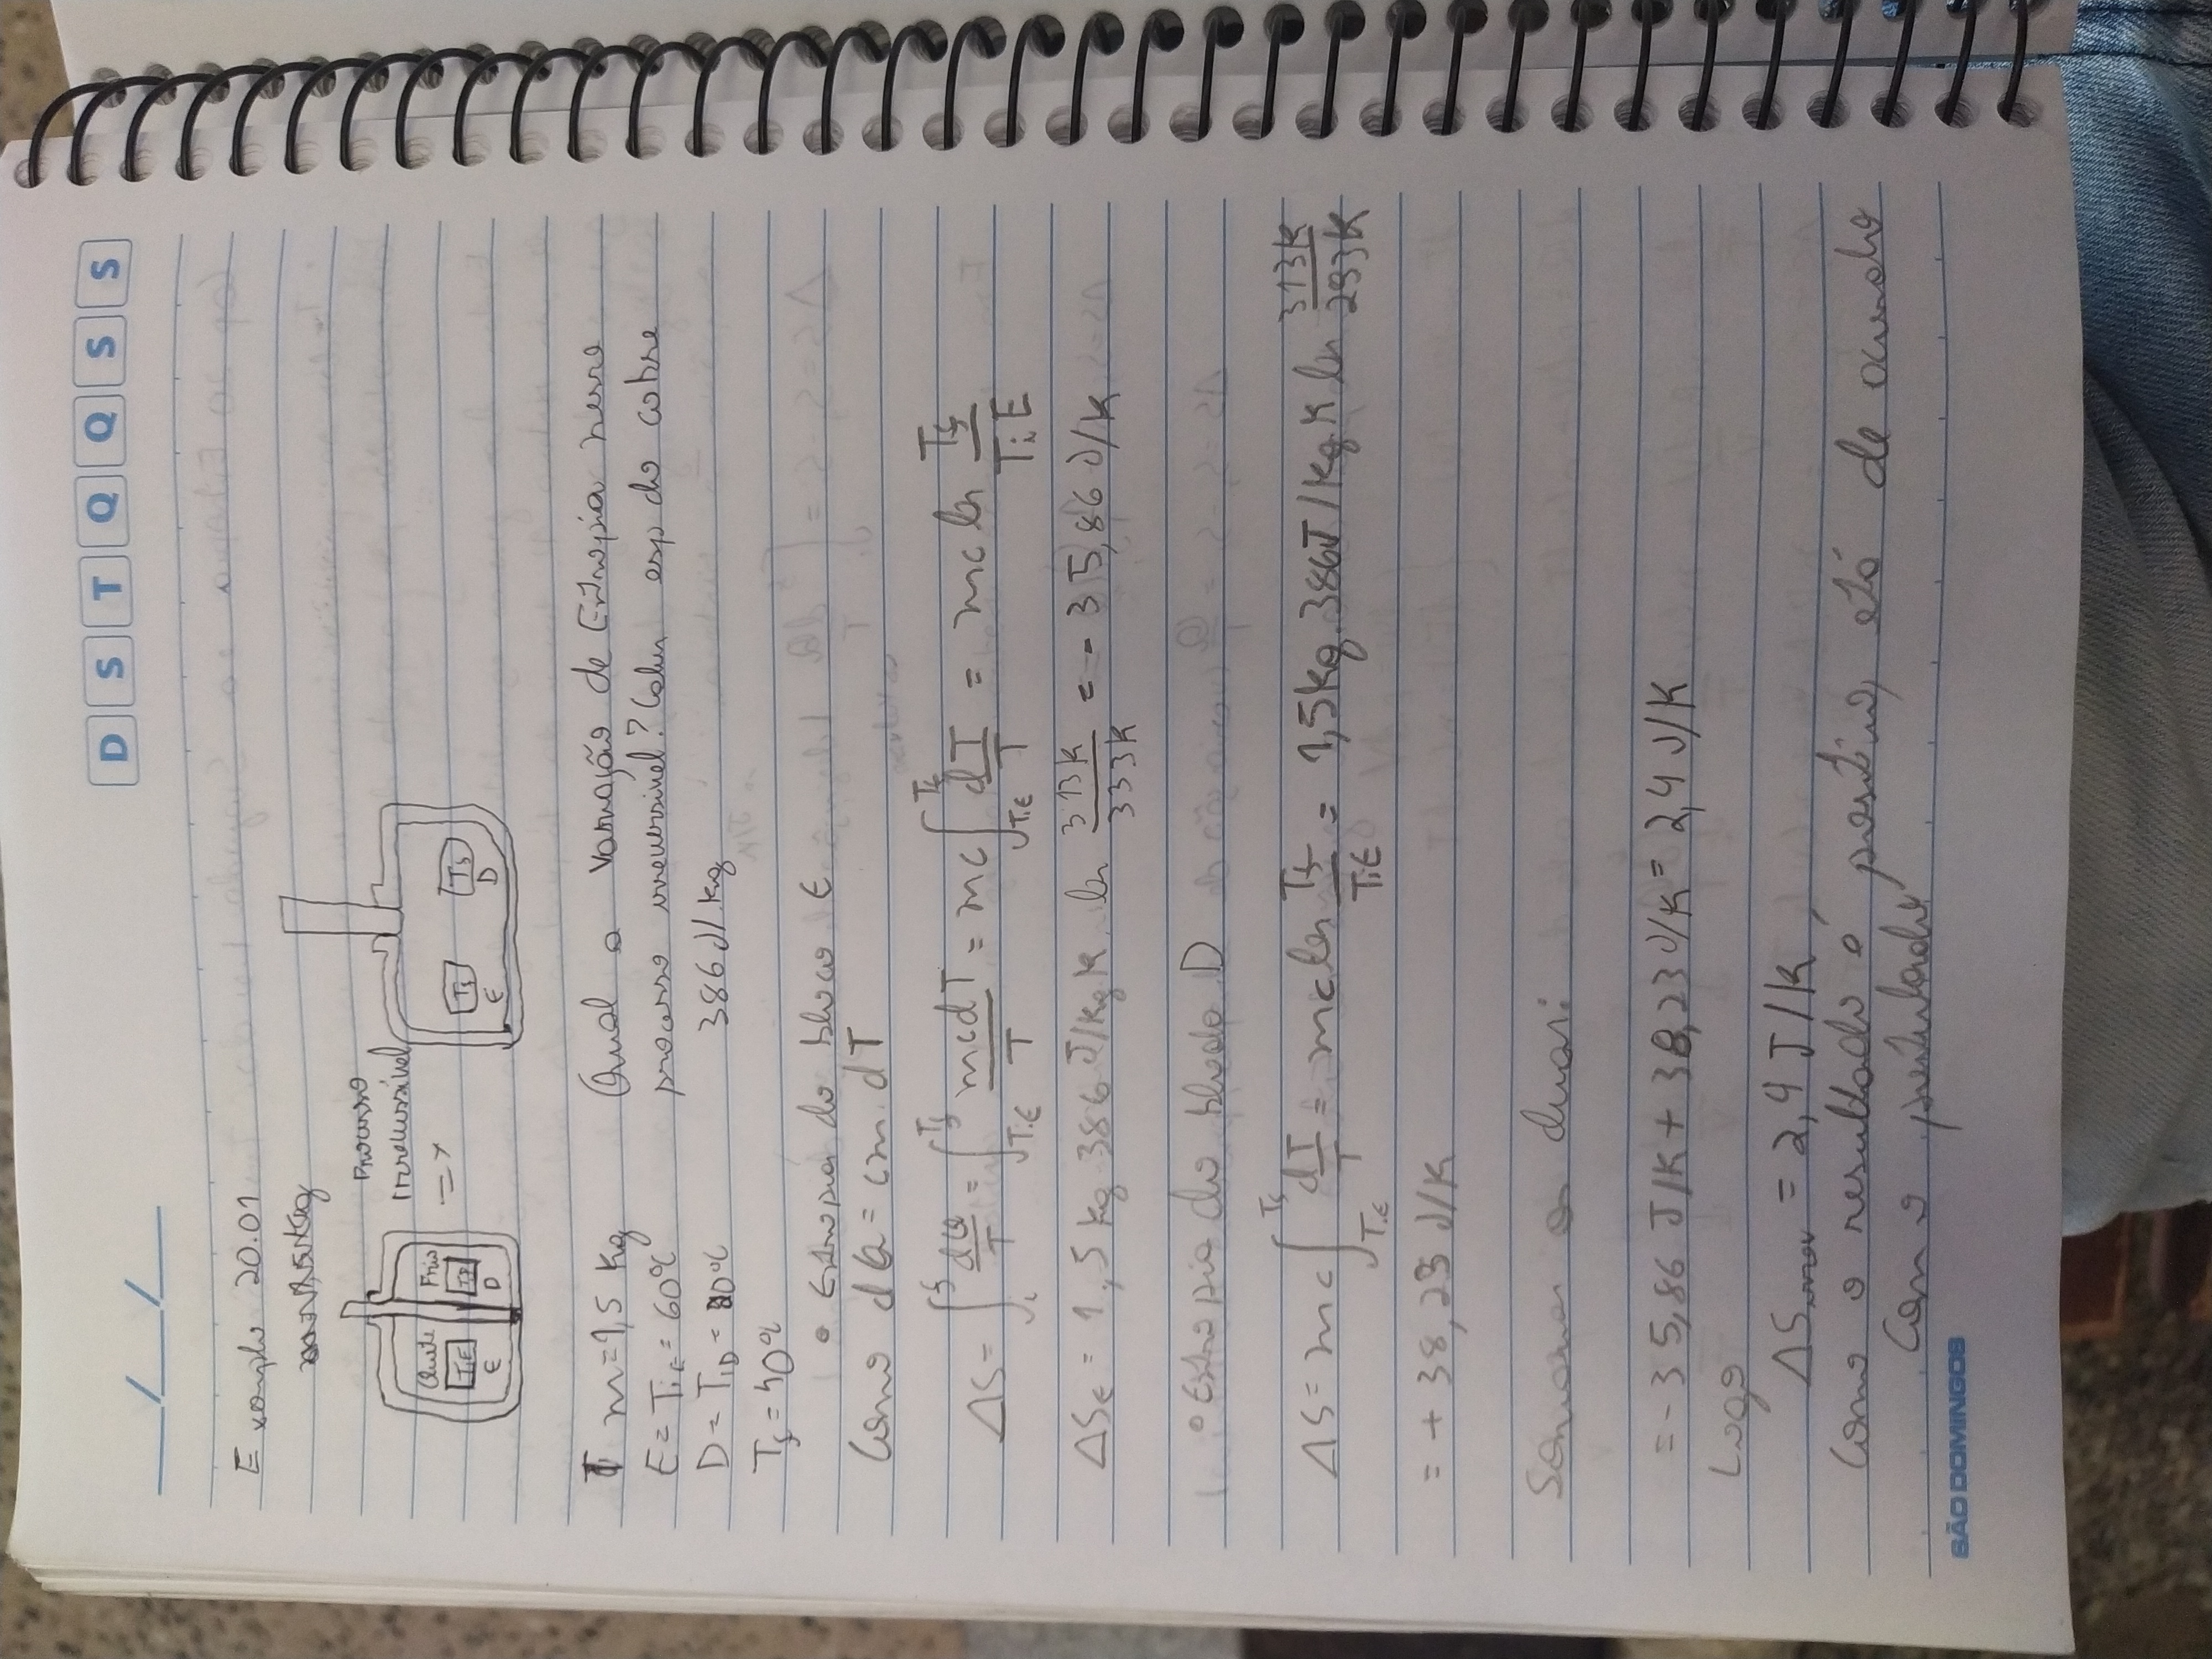 D S T Q Q S S
Exemplo 20.01
Processo
Irreversível
=>
Quente Frio
TiE TiD
E D
Tf Tf
E D
m=1,5 kg Qual a variação de Entropia nesse
E = TiE = 60°C processo irreversível? Calor esp do cobre
D = TiD = 20°C 386 J/kg
Tf = 40°C
• Entropia do bloco E
Como dQ = cm.dT
ΔS = ∫ᵢᶠ dQ/T = ∫TiE^Tf mcdT/T = mc ∫TiE^Tf dT/T = mc ln Tf/TiE
ΔSE = 1,5 kg 386 J/kg K ln 313K/333K = -35,86 J/K
• Entropia do bloco D
ΔS = mc ∫TiE^Tf dT/T = mc ln Tf/TiE = 1,5kg.386J/kg.K ln 313K/293K
= + 38,23 J/K
Somamos as duas:
= -35,86 J/K + 38,23 J/K = 2,4 J/K
Logo
ΔSirrev = 2,4 J/K
Como o resultado é positivo, está de acordo
com o postulado
SÃO DOMINGOS